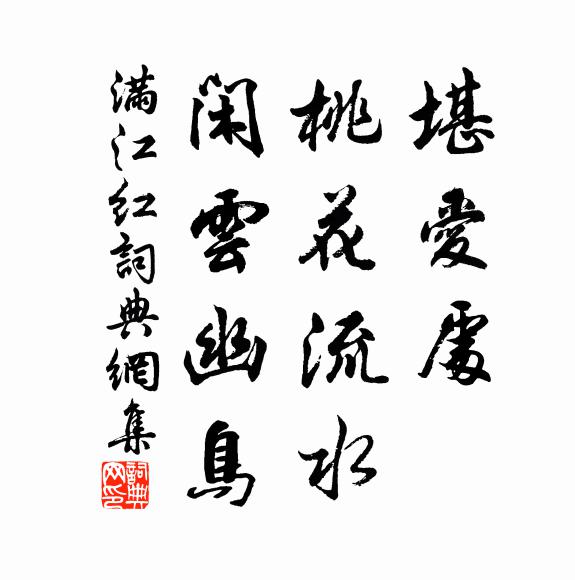 堪愛處
桃花流水
閑雲幽鳥
滿江紅詞典網集
詞典網印